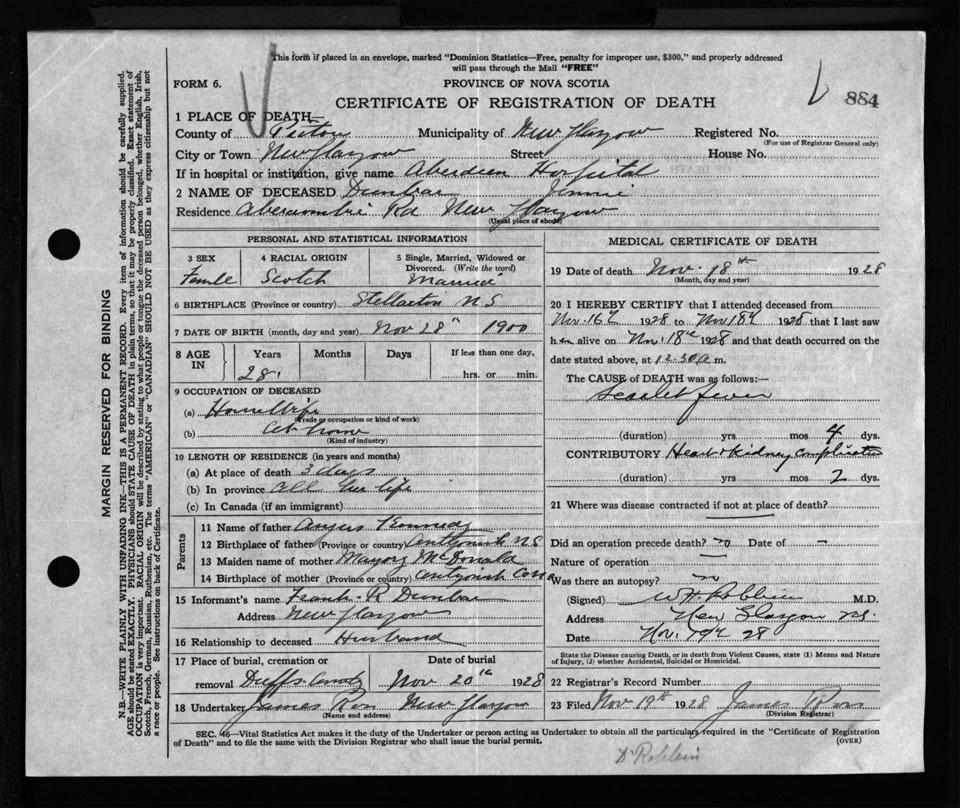 This form if placed in an envelope, marked "Dominion Statistics—Free, penalty for improper use, $300," and properly addressed
will pass through the Mail "FREE"
FORM 6.
PROVINCE OF NOVA SCOTIA
884
CERTIFICATE OF REGISTRATION OF DEATH
1 PLACE OF DEATH—
County of Pictou Municipality of New Glasgow Registered No.
(For use of Registrar General only)
City or Town New Glasgow Street House No.
If in hospital or institution, give name Aberdeen Hospital
2 NAME OF DECEASED Dunbar Jennie
Residence Abercrombie Rd New Glasgow
(Usual place of abode)
PERSONAL AND STATISTICAL INFORMATION
3 SEX
Femle
4 RACIAL ORIGIN
Scotch
5 Single, Married, Widowed or
Divorced. (Write the word)
Married
6 BIRTHPLACE (Province or country) Stellarton N S
7 DATE OF BIRTH (month, day and year) Nov 28th 1900
8 AGE
IN
Years
Months
Days
If less than one day,
28
hrs. or min.
9 OCCUPATION OF DECEASED
(a) HouseWife
(Trade or occupation or kind of work)
(b) At Home
(Kind of industry)
10 LENGTH OF RESIDENCE (in years and months)
(a) At place of death 3 days
(b) In province all her life
(c) In Canada (if an immigrant)
Parents
11 Name of father Angus Kennedy
12 Birthplace of father (Province or country) N S
13 Maiden name of mother McDonald
14 Birthplace of mother (Province or country)
15 Informant's name Frank R Dunbar
Address New Glasgow
16 Relationship to deceased Husband
17 Place of burial, cremation or
removal Duffs
Date of burial
Nov 20th 1928
18 Undertaker James Ross New Glasgow
(Name and address)
MEDICAL CERTIFICATE OF DEATH
19 Date of death Nov. 18th 1928
(Month, day and year)
20 I HEREBY CERTIFY that I attended deceased from
Nov. 16th 1928 to Nov 18th 1928 that I last saw
her alive on Nov. 18th 1928 and that death occurred on the
date stated above, at 12.30 a m.
The CAUSE of DEATH was as follows:—
Scarlet fever
(duration) yrs mos 4 dys.
CONTRIBUTORY Heart & Kidney
(duration) yrs mos 2 dys.
21 Where was disease contracted if not at place of death?
Did an operation precede death? no Date of –
Nature of operation
Was there an autopsy? no
(Signed) M.D.
Address New Glasgow N.S.
Date Nov. 19th 28
State the Disease causing Death, or in death from Violent Causes, state (1) Means and Nature
of Injury, (2) whether Accidental, Suicidal or Homicidal.
22 Registrar's Record Number
23 Filed Nov 19th 1928 James Ross
(Division Registrar)
SEC. 46—Vital Statistics Act makes it the duty of the Undertaker or person acting as Undertaker to obtain all the particulars required in the "Certificate of Registration
of Death" and to file the same with the Division Registrar who shall issue the burial permit.
(OVER)
MARGIN RESERVED FOR BINDING
N.B.—WRITE PLAINLY WITH UNFADING INK—THIS IS A PERMANENT RECORD. Every item of information should be carefully supplied.
AGE should be stated EXACTLY. PHYSICIANS should STATE CAUSE OF DEATH in plain terms, so that it may be properly classified. Exact statement of
OCCUPATION is very important. RACIAL ORIGIN will be described by stating to what people or tongue the deceased person belonged, whether English, Irish,
Scotch, French, German, Russian, Ruthenian, etc. The terms "AMERICAN" or "CANADIAN" SHOULD NOT BE USED as they express citizenship but not
a race or people. See instructions on back of Certificate.